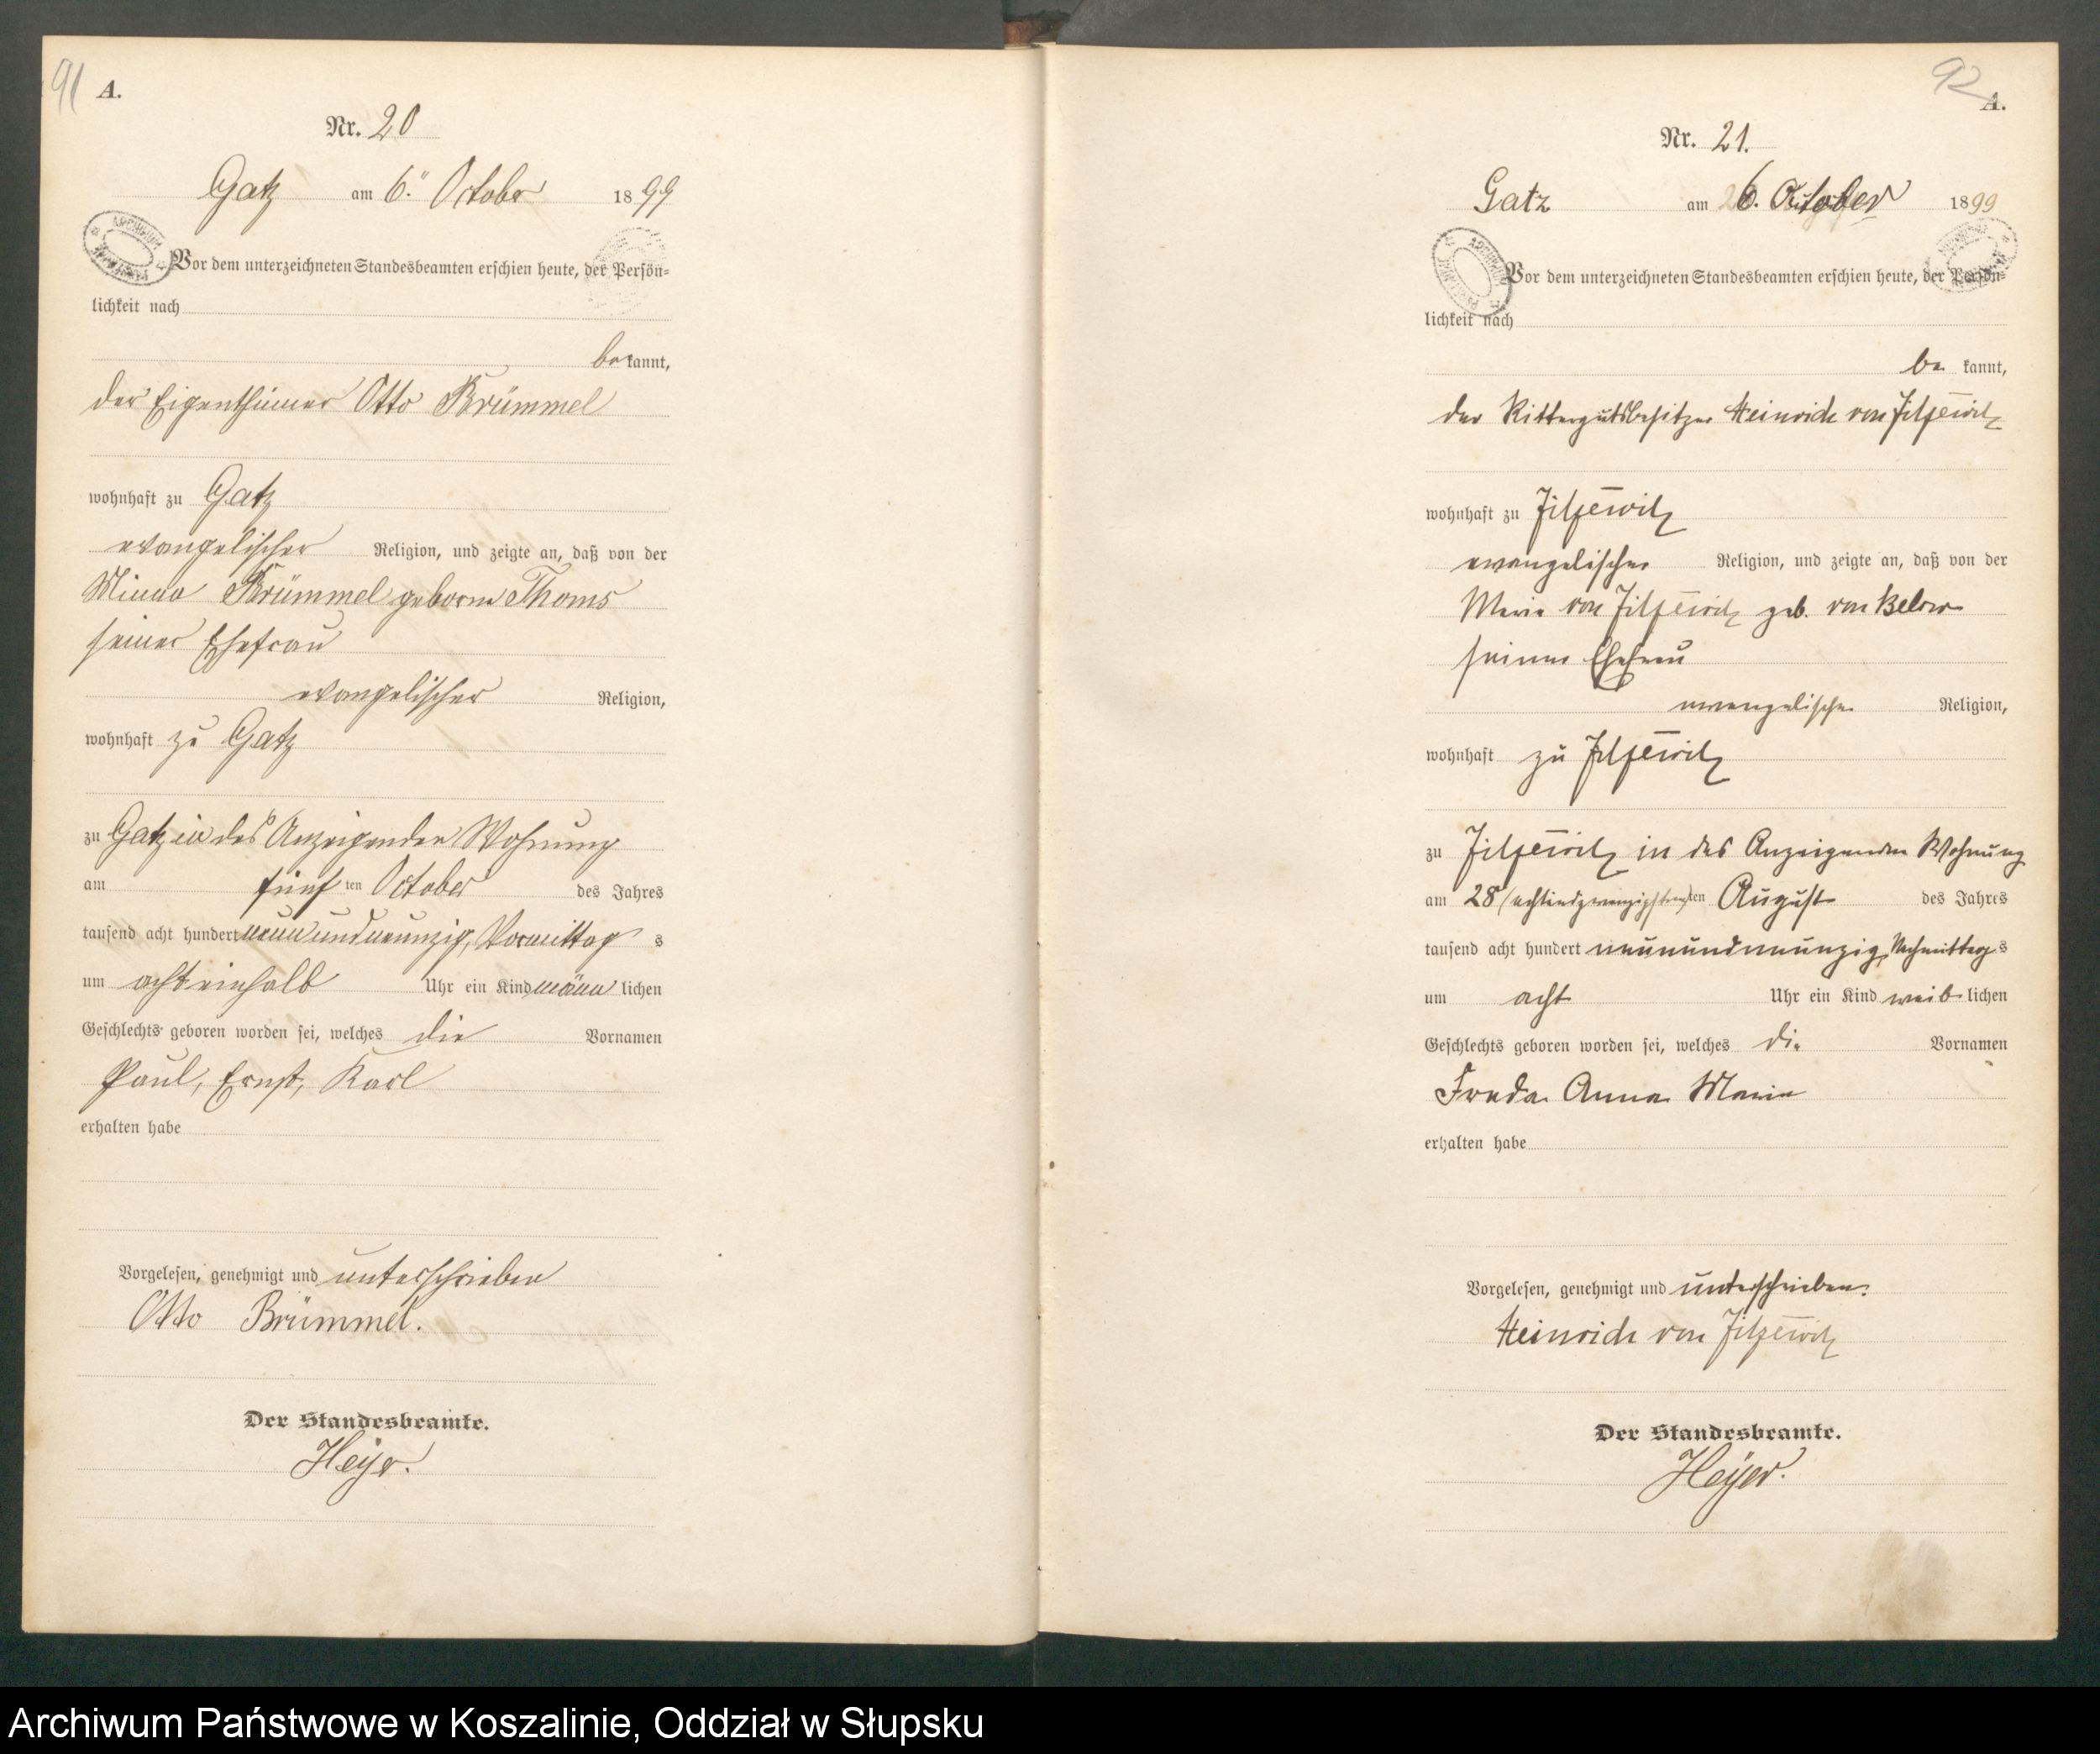 91
A.
Nr. 20
Gatz am 6ten October 1899
Vor dem unterzeichneten Standesbeamten erschien heute, der Persön=
lichkeit nach
bekannt,
der Eigenthümer Otto Brümmel
wohnhaft zu Gatz
evangelischer Religion, und zeigte an, daß von der
Minna Brümmel geborne Thoms
seiner Ehefrau
evangelischer Religion,
wohnhaft zu Gatz
zu Gatz in des Anzeigenden Wohnung
am fünften October des Jahres
tausend acht hundert neunundneunzig, Vormittags
um achteinhalb Uhr ein Kind männlichen
Geschlechts geboren worden sei, welches die Vornamen
Paul, Ernst, Karl
erhalten habe
Vorgelesen, genehmigt und unterschrieben
Otto Brümmel.
Der Standesbeamte.
Heyer.
92
A.
Nr. 21.
Gatz am 6. October 1899
Vor dem unterzeichneten Standesbeamten erschien heute, der Persön=
lichkeit nach
bekannt,
der Rittergutsbesitzer Heinrich von Zitzewitz
wohnhaft zu Zitzewitz
evangelischer Religion, und zeigte an, daß von der
Marie von Zitzewitz geb. von Below
seiner Ehefrau
evangelischer Religion,
wohnhaft zu Zitzewitz
zu Zitzewitz in des Anzeigenden Wohnung
am 28 (achtundzwanzigsten)ten August des Jahres
tausend acht hundert neunundneunzig, Nachmittags
um acht Uhr ein Kind weiblichen
Geschlechts geboren worden sei, welches die Vornamen
Freda Anna Marie
erhalten habe
Vorgelesen, genehmigt und unterschrieben.
Heinrich von Zitzewitz
Der Standesbeamte.
Heyer.
Archiwum Państwowe w Koszalinie, Oddział w Słupsku